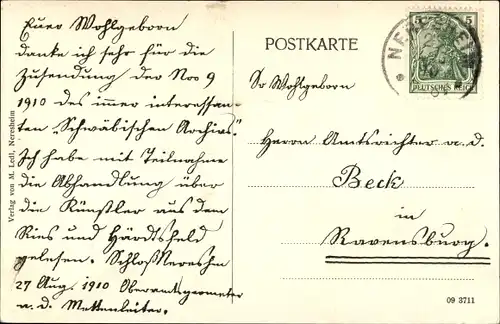 Euer Wohlgeborn
danke ich sehr für die
Zusendung der Nos 9
1910 des immer interessan-
ten „Schwäbischen Archivs".
Ich habe mit Teilnahme
die Abhandlung über
die Künstler aus dem
Ries und Härdtsfeld
gelesen. Schloß Neresh
27 Aug. 1910 Oberamtsgeometer
a. D. Mettenleiter.
Verlag von M. Ledl, Neresheim
POSTKARTE
5 5
DEUTSCHES REICH
NERESHEIM
Sr Wohlgeborn
Herrn Amtsrichter a. D.
Beck
in
Ravensburg.
09 3711